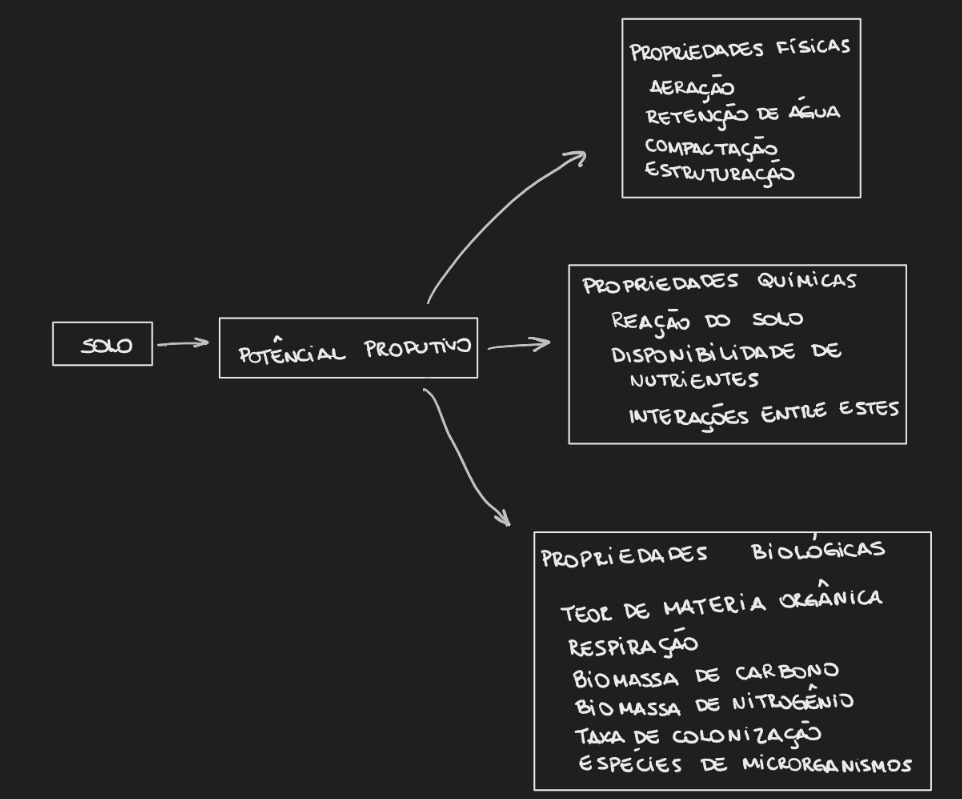 SOLO
POTÊNCIAL PRODUTIVO
PROPRIEDADES FÍSICAS
AERAÇÃO
RETENÇÃO DE ÁGUA
COMPACTAÇÃO
ESTRUTURAÇÃO
PROPRIEDADES QUÍMICAS
REAÇÃO DO SOLO
DISPONIBILIDADE DE
NUTRIENTES
INTERAÇÕES ENTRE ESTES
PROPRIEDADES BIOLÓGICAS
TEOR DE MATERIA ORGÂNICA
RESPIRAÇÃO
BIOMASSA DE CARBONO
BIOMASSA DE NITROGÊNIO
TAXA DE COLONIZAÇÃO
ESPÉCIES DE MICRORGANISMOS